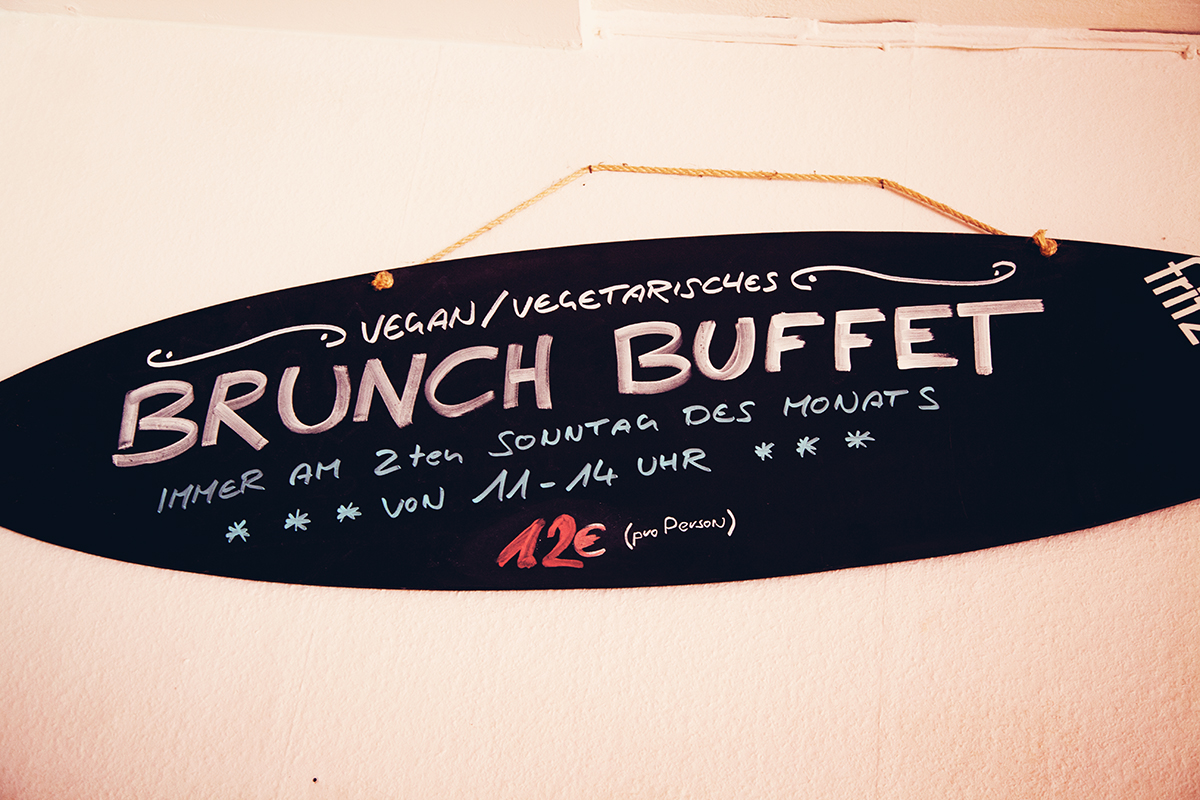 VEGAN/VEGETARISCHES
BRUNCH BUFFET
IMMER AM 2ten SONNTAG DES MONATS
*** VON 11-14 UHR ***
12€ (pro Person)
fritz